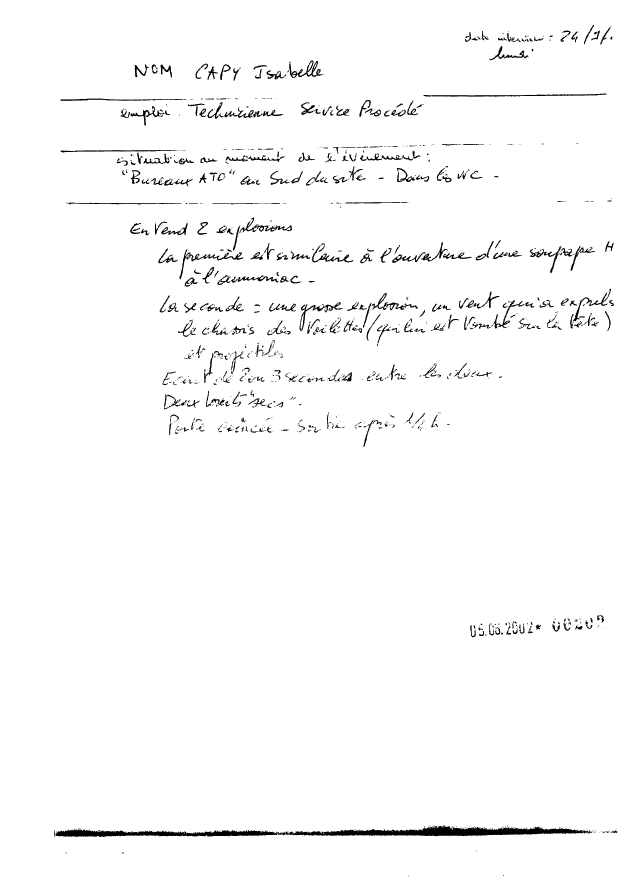 date interview : 24/9/.
lundi
NOM CAPY Isabelle
emploi : Technicienne Service Procédé
situation au moment de l'évènement :
"Bureaux ATO" au Sud du site - Dans les WC -
Entend 2 explosions
La première est similaire à l'ouverture d'une soupape H
à l'ammoniac -
La seconde = une grosse explosion, un vent qui a expulsé
le chassis des toilettes (qui lui est tombé sur la tête)
et projectiles
Ecart de 2 ou 3 secondes entre les deux.
Deux bruits "secs".
Porte coincée - Sortie après 1/4 h.
05.06.2002* 00209